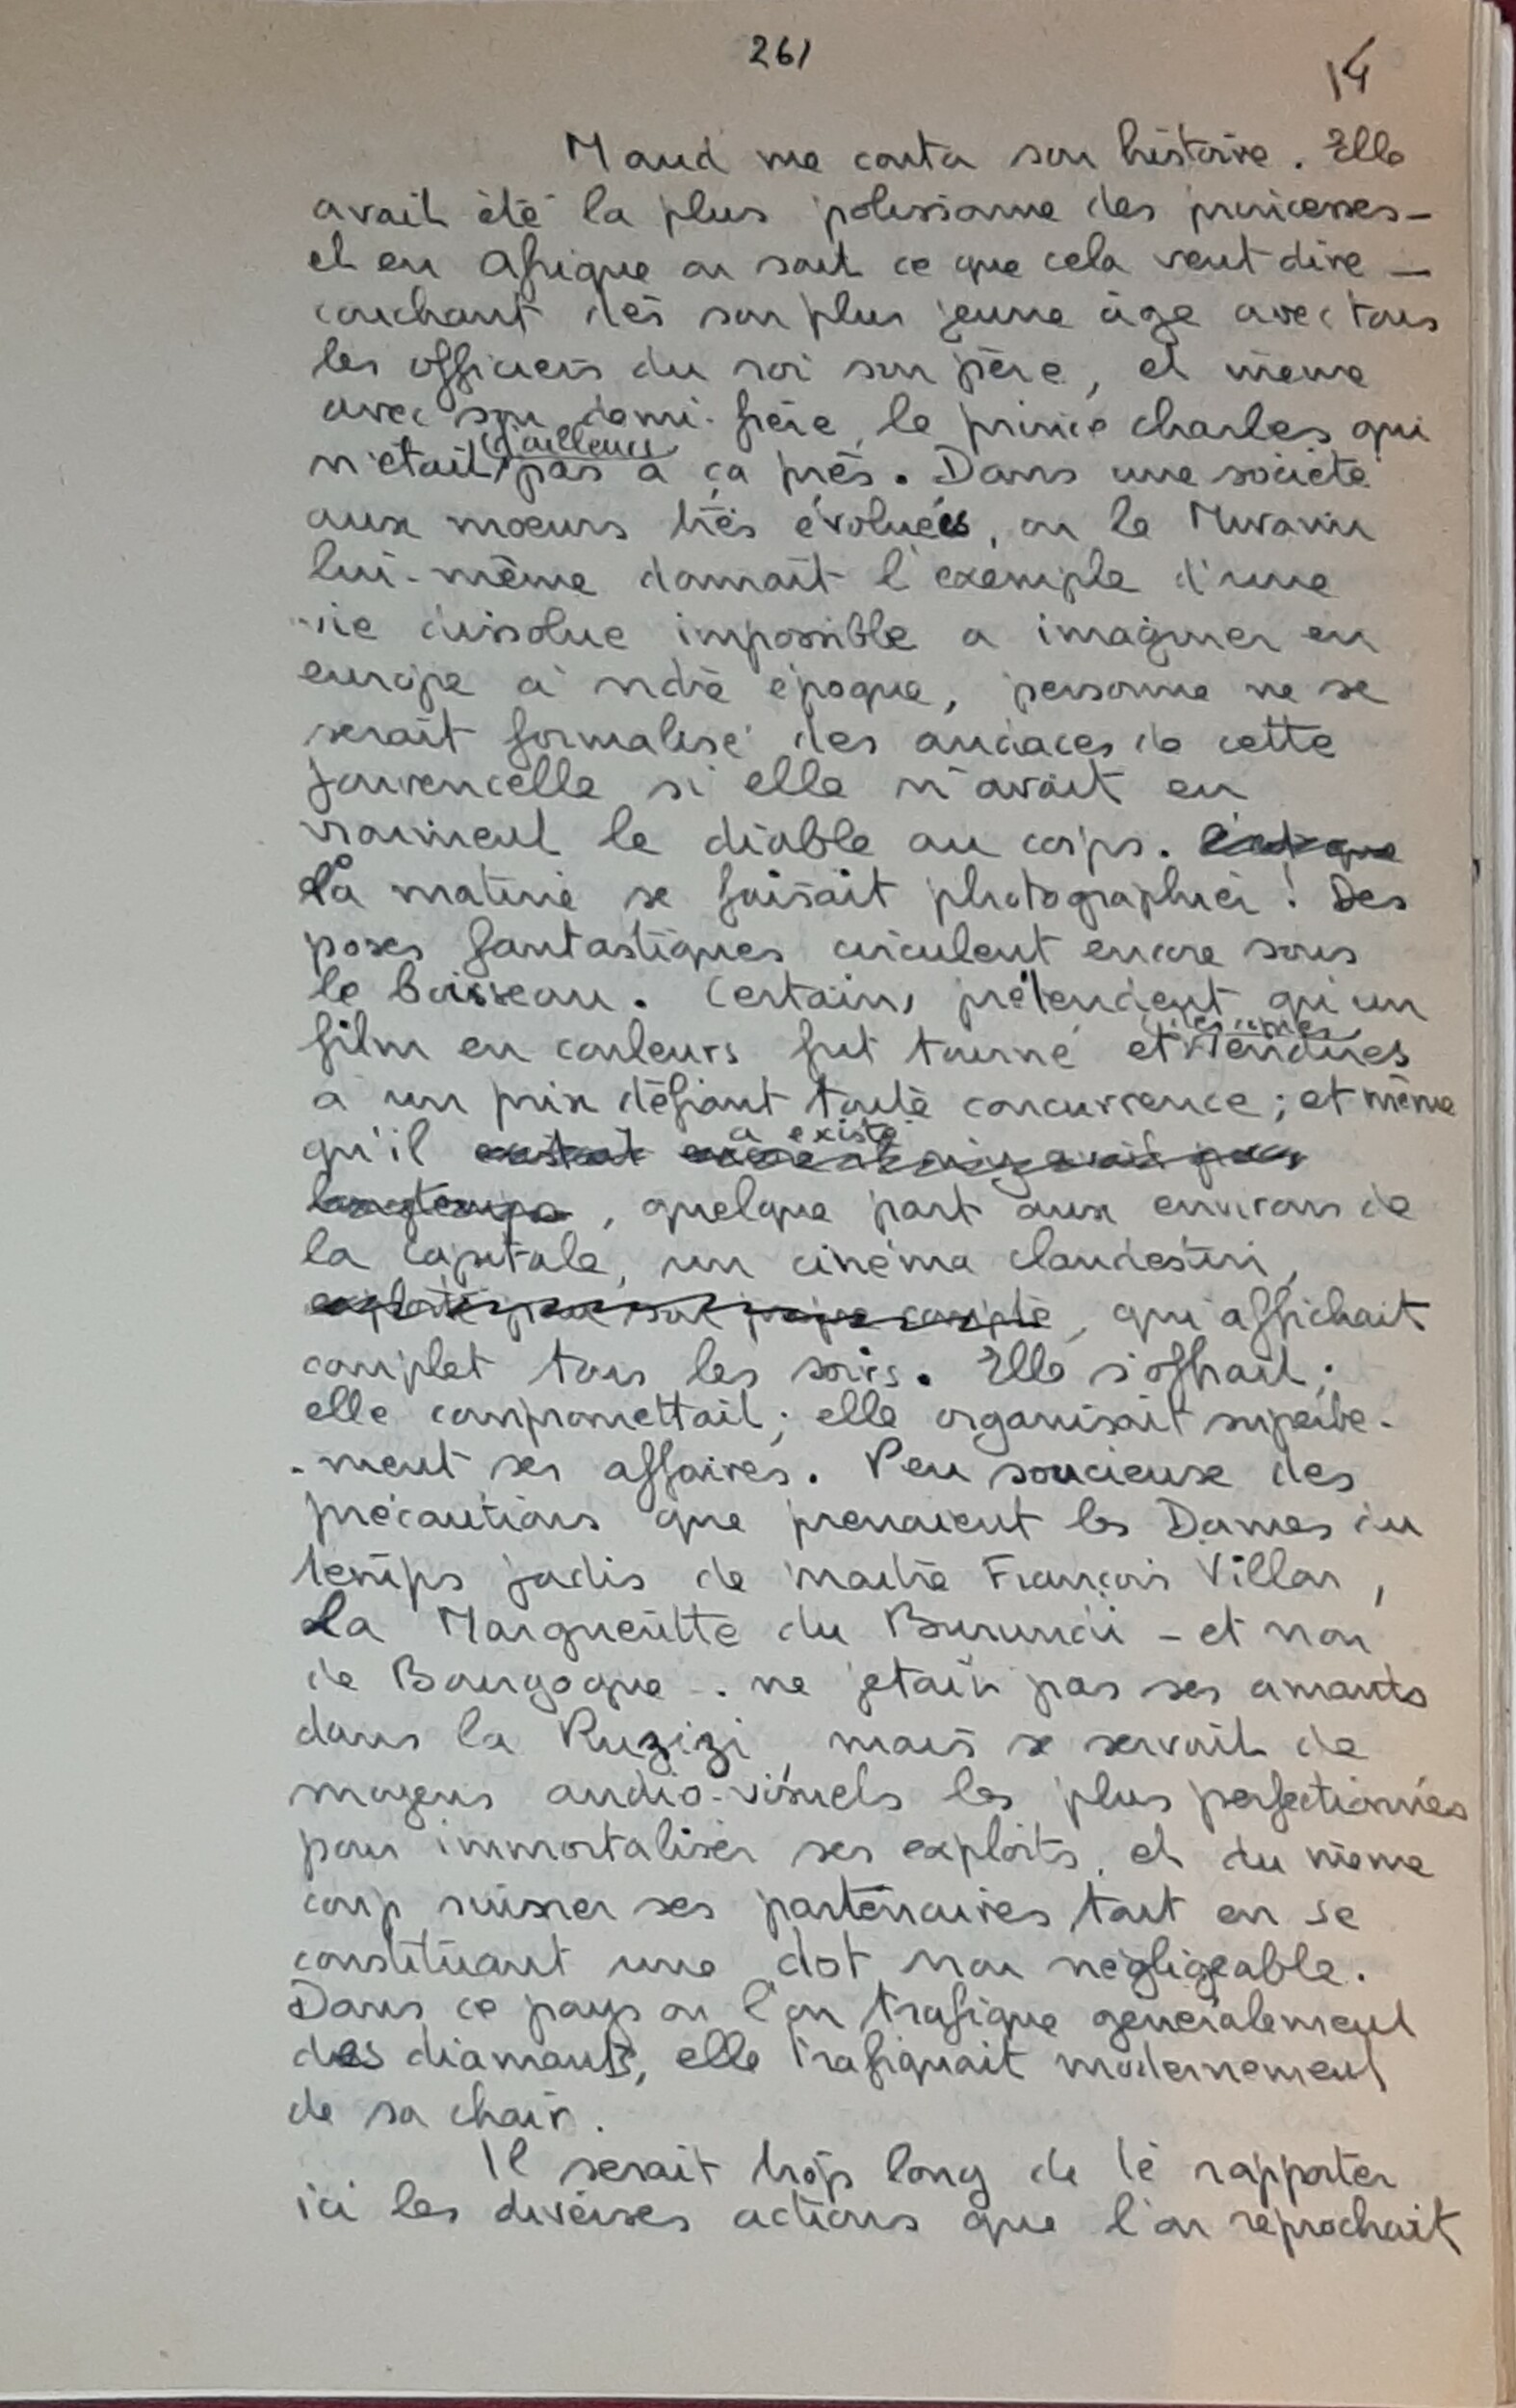 261
14
Maud me conta son histoire. Elle
avait été la plus polissonne des princesses -
et en Afrique on sait ce que cela veut dire -
couchant dès son plus jeune âge avec tous
les officiers du roi son père, et même
avec son demi-frère, le prince Charles qui
n'était d'ailleurs pas à ça près. Dans une société
aux moeurs très évoluées, où le Mwami
lui-même donnait l'exemple d'une
vie dissolue impossible a imaginer en
europe à notre époque, personne ne se
serait formalisé des audaces de cette
jouvencelle si elle n'avait eu
vraiment le diable au corps. C'est que
la matine se faisait photographier! Des
poses fantastiques circulent encore sous
le boisseau. Certains prétendent qu'un
film en couleurs fut tourné et vendues
à un prix défiant toute concurrence; et même
qu'il a existé
longtemps, quelque part aux environs de
la capitale, un cinéma clandestin,
exploité pour son propre compte, qui affichait
complet tous les soirs. Elle s'offrait;
elle compromettait; elle organisait superbe-
-ment ses affaires. Peu soucieuse des
précautions que prenaient les Dames du
temps jadis de maître François Villon,
la Marguerite du Burundi - et non
de Bourgogne - ne jetait pas ses amants
dans la Ruzizi, mais se servait de
moyens audio-visuels les plus perfectionnés
pour immortaliser ses exploits, et du même
coup ruiner ses partenaires tout en se
constituant une dot non négligeable.
Dans ce pays ou l'on trafique généralement
des diamants, elle trafiquait modernement
de sa chair.
Il serait trop long de te rapporter
ici les diverses actions que l'on reprochait